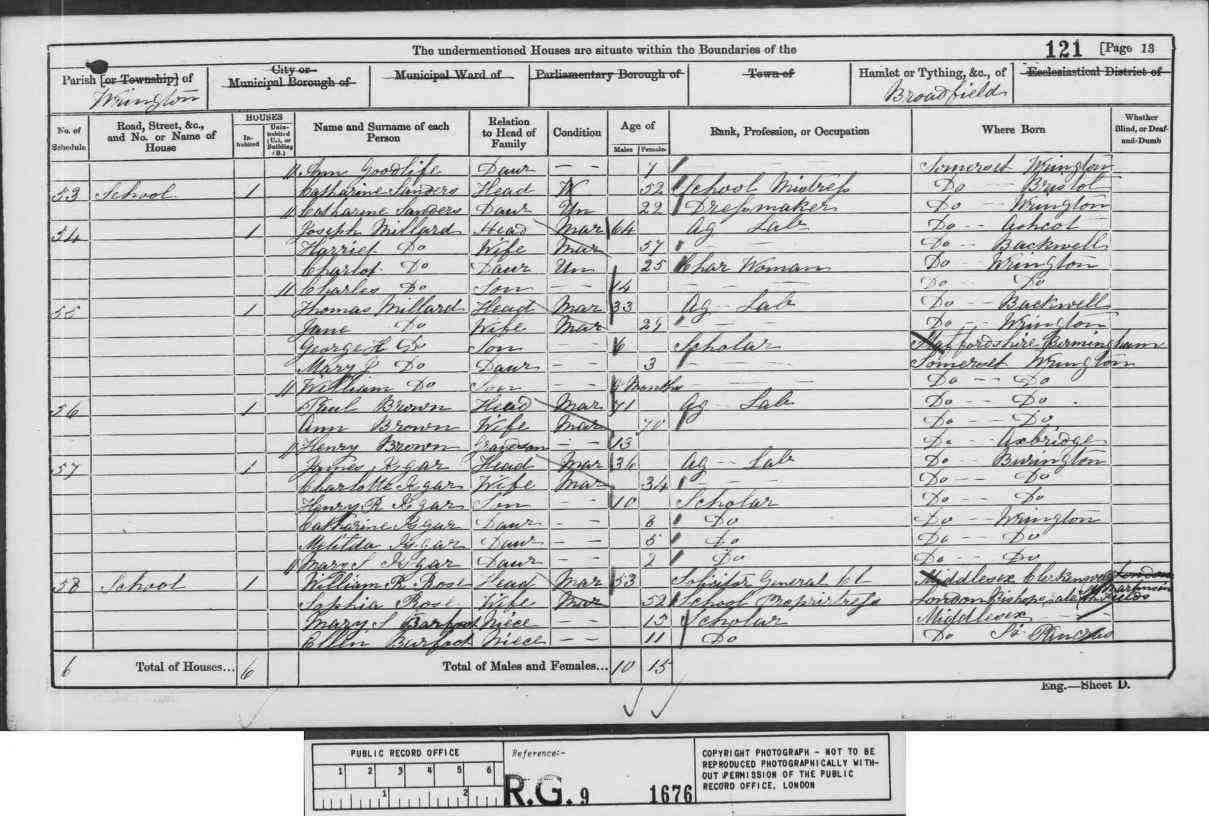 The undermentioned Houses are situate within the Boundaries of the 121 [Page 13
Parish [or Township] of Wrington City or Municipal Borough of Municipal Ward of Parliamentary Borough of Town of Hamlet or Tything, &c., of Broadfield Ecclesiastical District of
No. of Schedule Road, Street, &c., and No. or Name of House HOUSES Inhabited Uninhabited (U.), or Building (B.) Name and Surname of each Person Relation to Head of Family Condition Age of Males Females Rank, Profession, or Occupation Where Born Whether Blind, or Deaf-and-Dumb
Ann Goodlife Daur – – 7 Somerset Wrington
53 School 1 Catharine Sanders Head W 52 School Mistress Do – – Bristol
Catharine Sanders Daur Un 22 Dressmaker Do – – Wrington
54 1 Joseph Millard Head Mar 64 Ag Lab Do – – Ashcot
Harriet Do Wife Mar 57 Do – – Backwell
Charlot Do Daur Un 25 Char Woman Do – – Wrington
Charles Do Son – – 14 Do – – Do
55 1 Thomas Millard Head Mar 33 Ag – – Lab Do – – Backwell
Jane Do Wife Mar 29 Do – – Wrington
George H Do Son – – 6 Scholar Staffordshire Birmingham
Mary J Do Daur – – 3 Somerset Wrington
William Do Son – – 9 Months Do – – Do
56 1 Paul Brown Head Mar 71 Ag – – Lab Do – – Do
Ann Brown Wife Mar 70 Do – – Do
Henry Brown Grandson – – 13 Do – – Axbridge
57 1 James Izgar Head Mar 36 Ag – – Lab Do – – Burington
Charlotte Izgar Wife Mar 34 Do – – Do
Henry R Izgar Son – – 10 Scholar Do – – Do
Catharine Izgar Daur – – 8 Do Do – – Wrington
Melilda Izgar Daur – – 5 Do Do – – Do
Mary S Izgar Daur – – 2 Do Do – – Do
58 School 1 William R Rose Head Mar 53 Solicitor General Middlesex Clerkenwell
Sophia Rose Wife Mar 52 School Proprietress London Bishopsgate
Mary S Barfoot Niece – – 15 Scholar Middlesex
Ellin Barfoot Niece – – 11 Do Do St Pancras
6 Total of Houses... 6 Total of Males and Females... 10 15
Eng.—Sheet D.
PUBLIC RECORD OFFICE
1 2 3 4 5 6
1 2
Reference:-
R.G. 9 1676
COPYRIGHT PHOTOGRAPH - NOT TO BE
REPRODUCED PHOTOGRAPHICALLY WITH-
OUT PERMISSION OF THE PUBLIC
RECORD OFFICE, LONDON